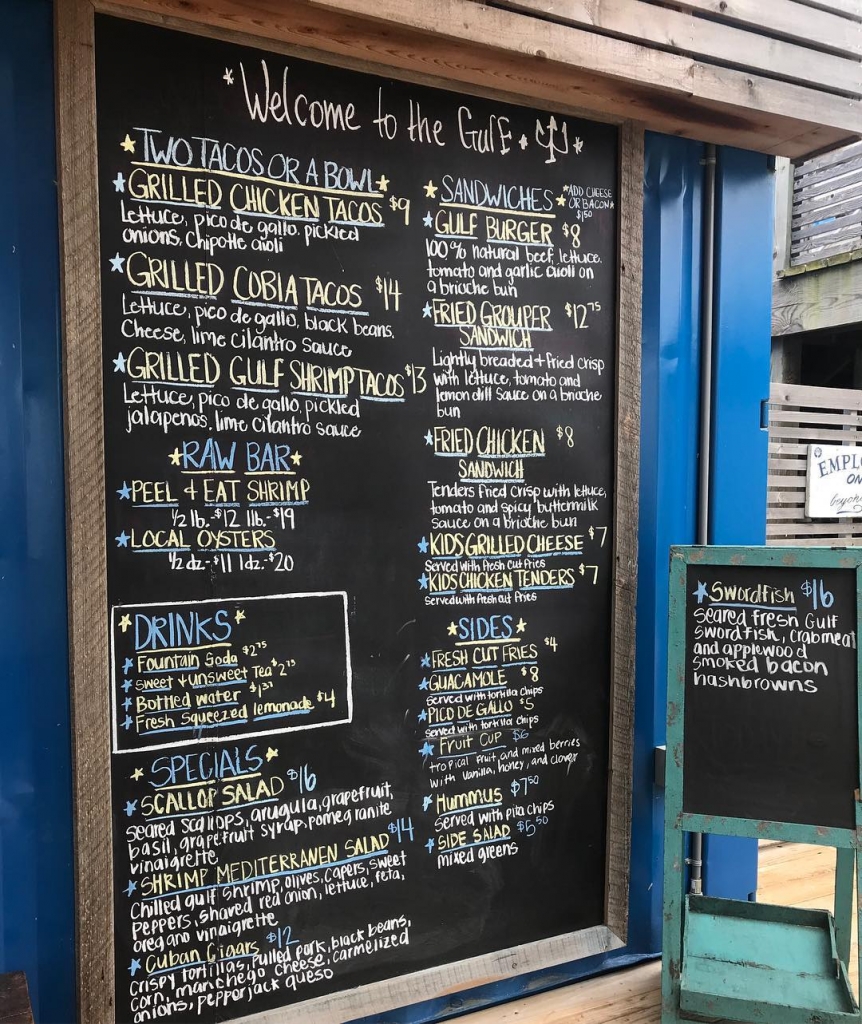 Welcome to the Gulf
TWO TACOS OR A BOWL
GRILLED CHICKEN TACOS $9
lettuce, pico de gallo, pickled
onions, chipotle aioli
GRILLED COBIA TACOS $14
Lettuce, pico de gallo, black beans,
Cheese, lime cilantro sauce
GRILLED GULF SHRIMP TACOS $13
Lettuce, pico de gallo, pickled
jalapenos, lime cilantro sauce
RAW BAR
PEEL + EAT SHRIMP
1/2 lb.-$12 1lb.-$19
LOCAL OYSTERS
1/2 dz.-$11 1dz.-$20
DRINKS
Fountain Soda $2.75
Sweet + unsweet Tea $2.75
Bottled water
Fresh squeezed lemonade $4
SPECIALS
SCALLOP SALAD $16
seared scallops, arugula, grapefruit,
basil, grapefruit syrup, pomegranite
vinaigrette
SHRIMP MEDITERRANEN SALAD $14
Chilled gulf shrimp, olives, capers, sweet
peppers, shaved red onion, lettuce, feta,
oregano vinaigrette
Cuban Cigars $12
crispy tortillas, pulled pork, black beans,
corn, manchego cheese, carmelized
onions, pepperjack queso
SANDWICHES
ADD CHEESE
OR BACON
$1.50
GULF BURGER $8
100% natural beef, lettuce,
tomato and garlic aioli on
a brioche bun
FRIED GROUPER $12.75
SANDWICH
Lightly breaded + fried crisp
with lettuce, tomato and
lemon dill sauce on a brioche
bun
FRIED CHICKEN $8
SANDWICH
Tenders fried crisp with lettuce,
tomato and spicy buttermilk
sauce on a brioche bun
KIDS GRILLED CHEESE $7
Served with fresh cut fries
KIDS CHICKEN TENDERS $7
served with fresh cut fries
SIDES
FRESH CUT FRIES $4
GUACAMOLE $8
served with tortilla chips
PICO DE GALLO $5
served with tortilla chips
FRUIT CUP $6
tropical fruit and mixed berries
with vanilla, honey, and clover
HUMMUS $7.50
served with pita chips
SIDE SALAD $5.50
mixed greens
Swordfish $16
seared fresh Gulf
swordfish, crabmeat
and applewood
smoked bacon
hashbrowns
ON